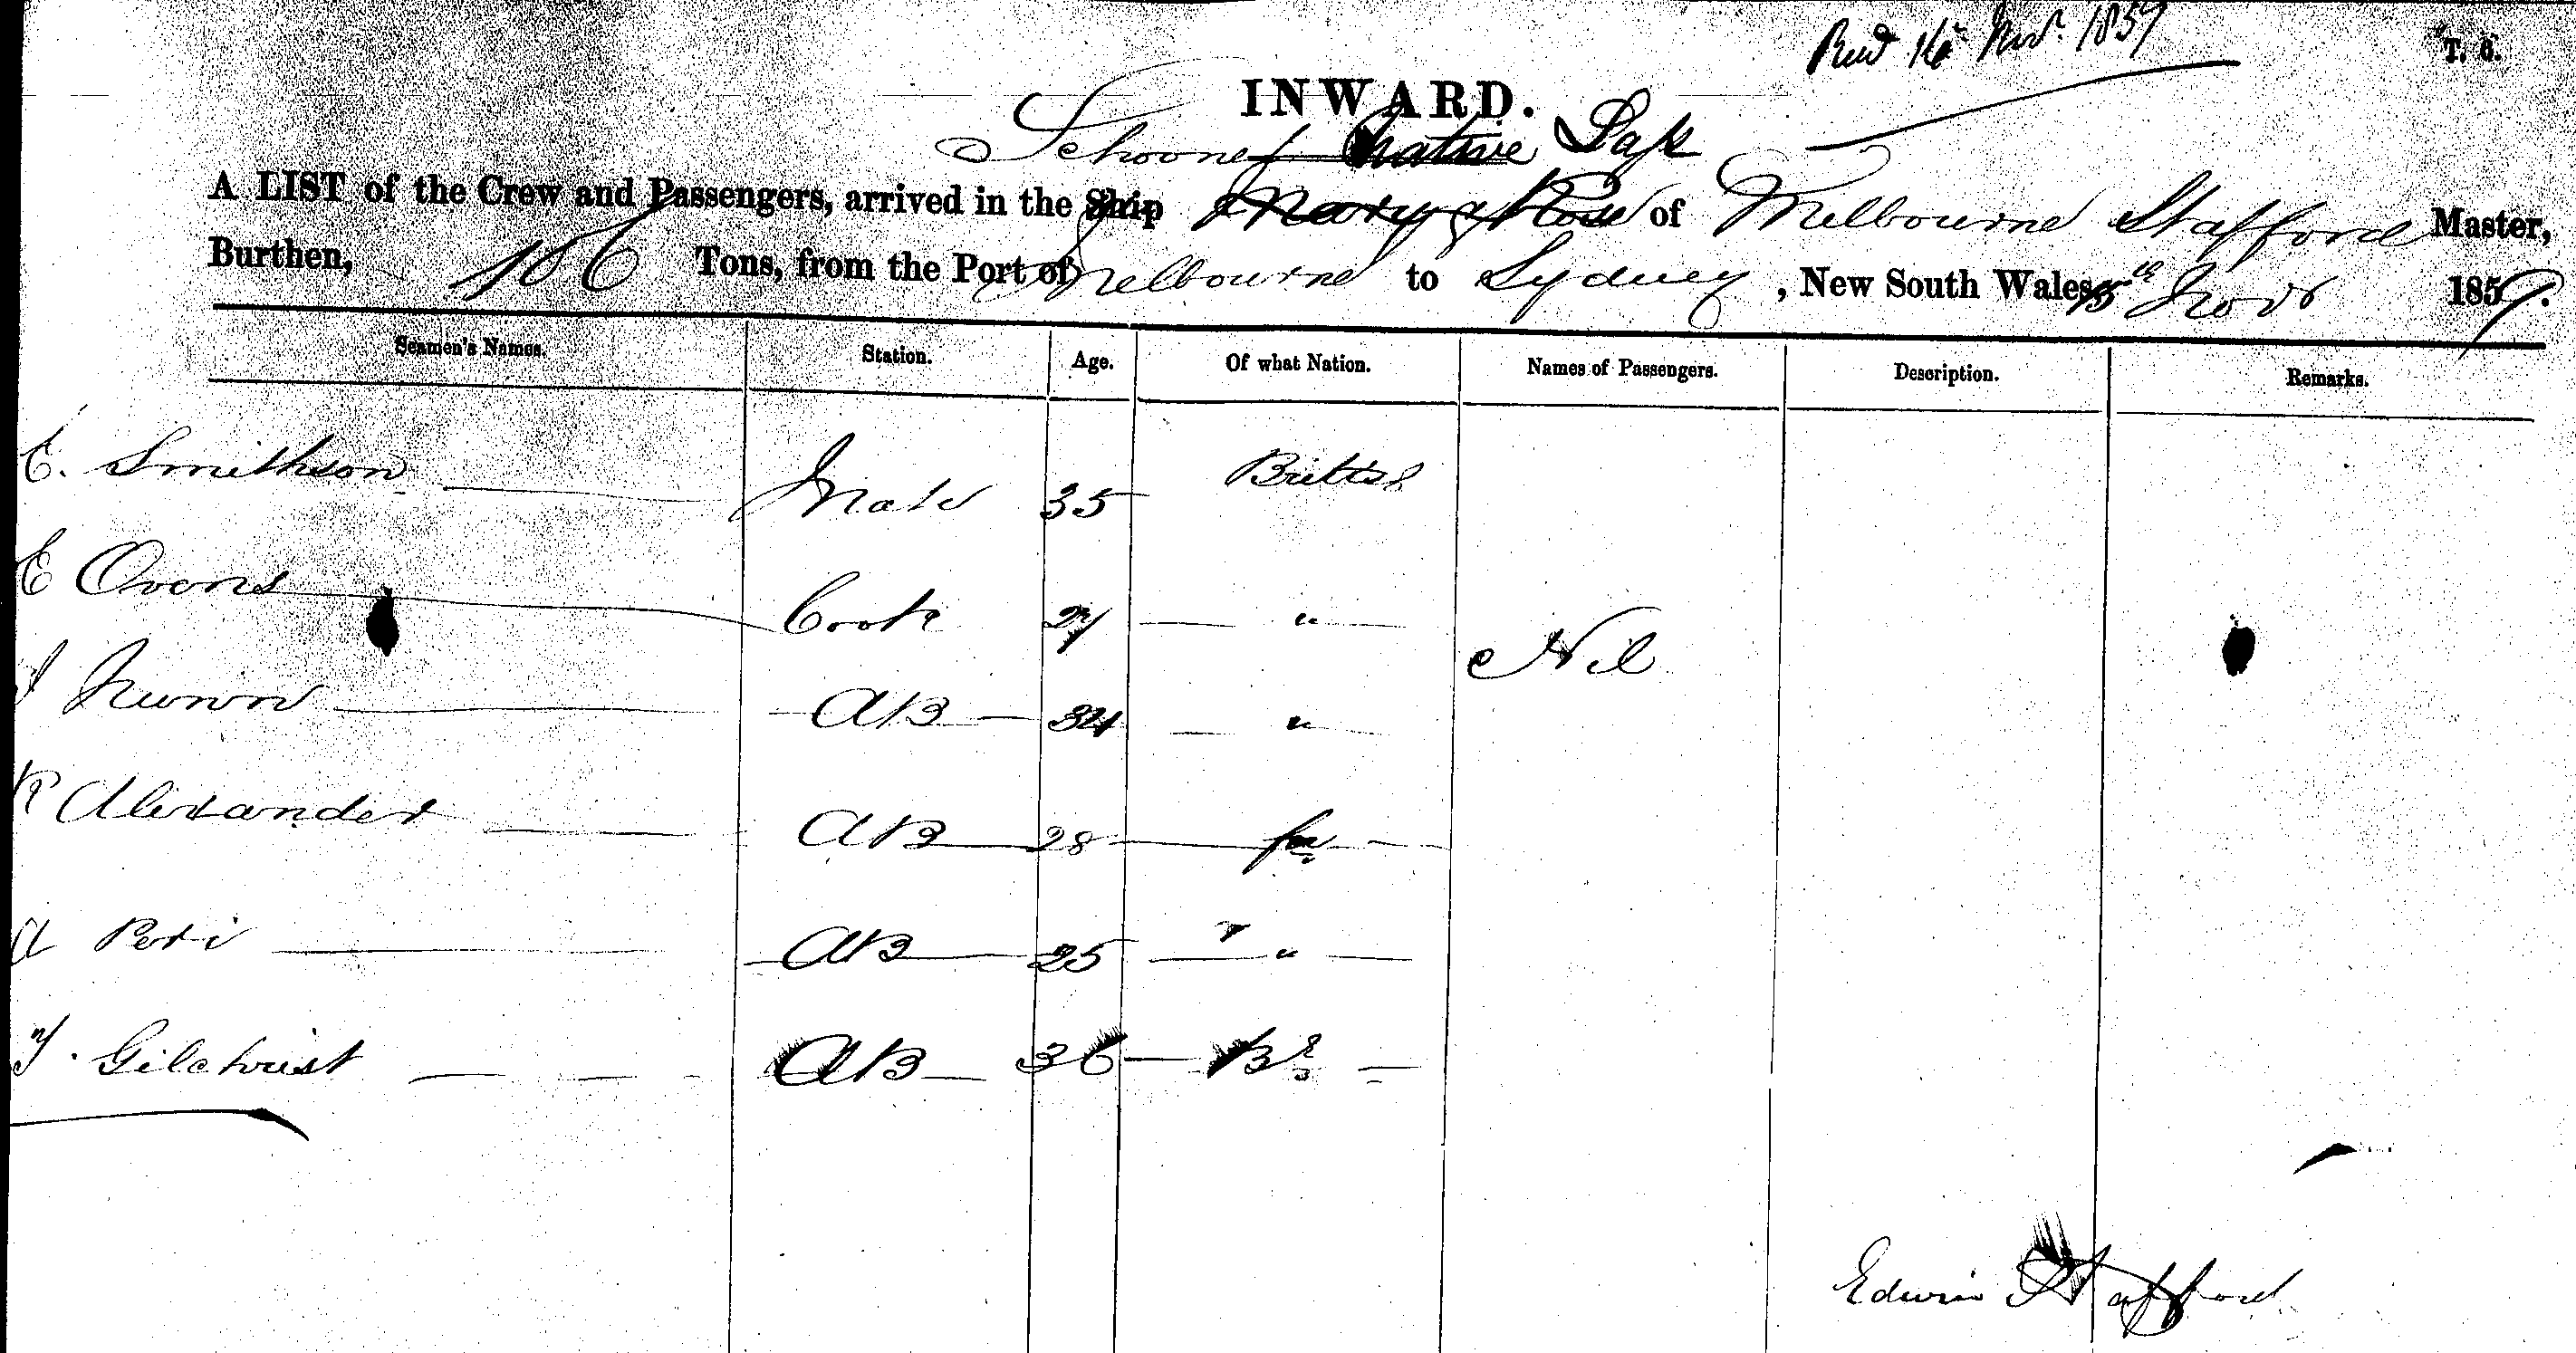 Recd 16 Novr. 1859
T. 6.
INWARD.
Schooner Native Lass
A LIST of the Crew and Passengers, arrived in the Ship Mary & Rose of Melbourne Stafford Master,
Burthen, 106 Tons, from the Port of Melbourne to Sydney, New South Wales, 15th Novr 1859.
Seamen's Names. Station. Age. Of what Nation. Names of Passengers. Description. Remarks.
E. Smithson Mate 35 British
E Ovens Cook 27 "
Nil
J Nunn AB 34 "
R Alexander AB 28
A Petri AB 25 "
Y. Gilchrist AB 36 Br
Edwin Stafford